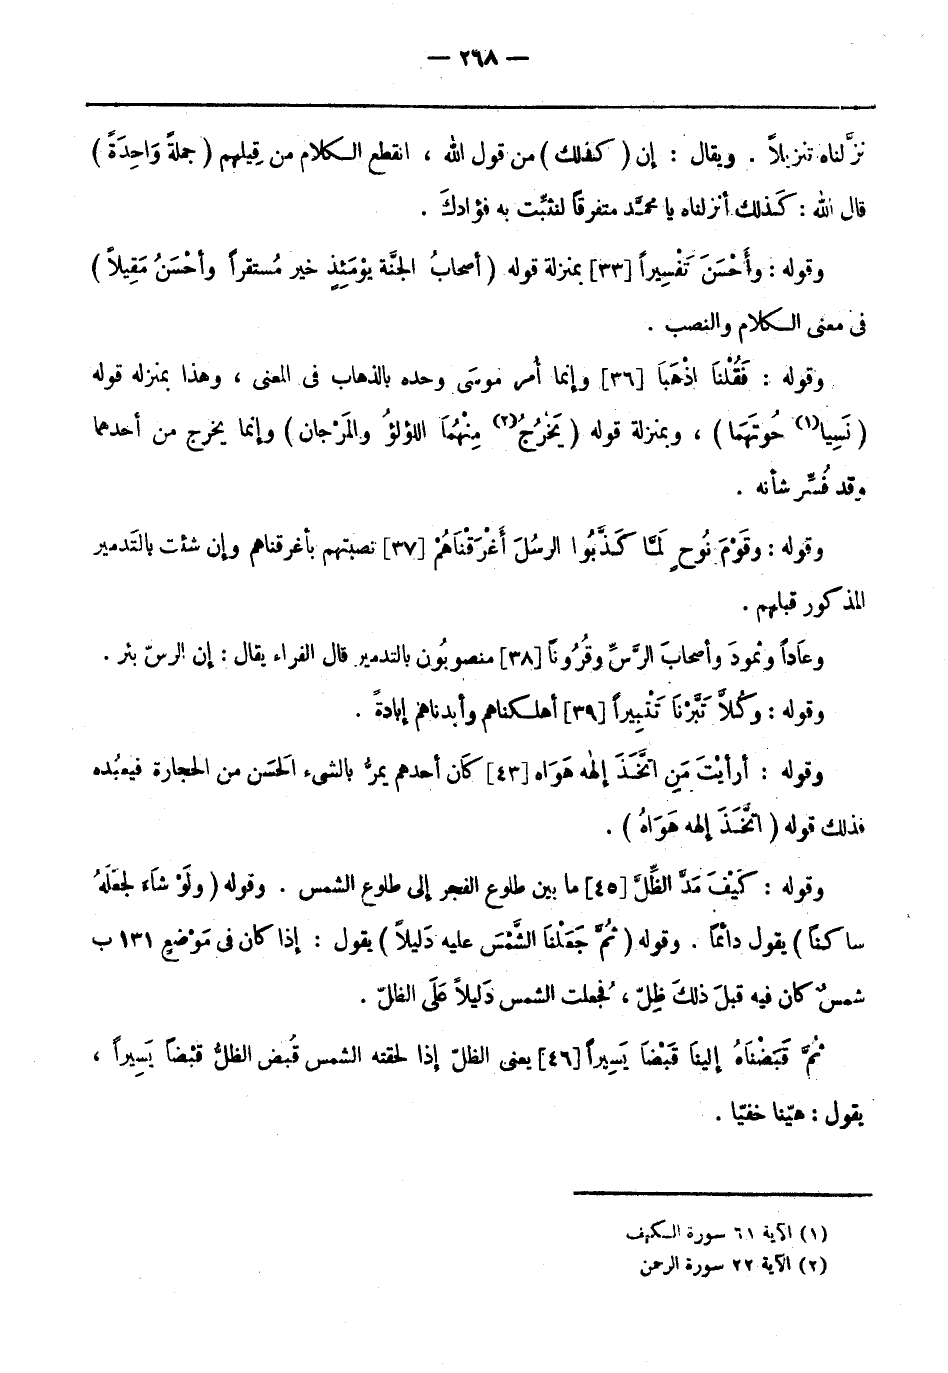 — ٢٦٨ —
نزَّلناه تنزيلاً . ويقال : إن ( كذلك ) من قول الله ، انقطع الكلام من قِيلهم ( جملةً وَاحِدَةً )
قال الله : كَذلك أنزلناه يا محمَّد متفرقاً لنثبِّت به فؤادكَ .
وقوله : وأَحْسَنَ تَفْسِيراً [٣٣] بمنزلة قوله ( أصحابُ الجنَّة يوْمَئِذٍ خير مُستقراً وأحْسَنُ مَقِيلاً )
فى معنى الكلام والنصب .
وقوله : فَقُلْنَا اذْهَبَا [٣٦] وإنما أُمر موسَى وحده بالذهاب فى المعنى ، وهذا بمنزله قوله
( نَسِيا(١) حُوتَهَما ) ، وبمنزلة قوله ( يَخْرُجُ(٢) مِنْهُمَا اللؤلؤُ والمَرْجان ) وإنما يخرج من أحدهما
وقد فُسِّر شأنه .
وقوله : وقَوْمَ نُوحٍ لَمَّا كَذَّبُوا الرسُلَ أَغْرَقْنَاهُمْ [٣٧] نصبتهم بأغرقناهم وإن شئت بالتَدمير
المذكور قبلهم .
وعَاداً وثمودَ وأصحابَ الرَّسِّ وقُرُونَاً [٣٨] منصوبُون بالتدمير قال الفراء يقال : إن الرسّ بئر .
وقوله : وكُلاًّ تَبَّرْنَا تَتْبِيراً [٣٩] أهلكناهم وأبدناهم إبادةً .
وقوله : أرأيْتَ مَنِ اتَّخَذَ إلٰهه هَوَاه [٤٣] كَان أحدهم يمرُّ بالشىء الحَسَن من الحجارة فيعبُده
فذلك قوله ( اتَّخَذَ إلهه هَوَاهُ ) .
وقوله : كَيْفَ مَدَّ الظِّلَّ [٤٥] ما بين طلوع الفجر إلى طلوع الشمس . وقوله ( ولَوْ شاء لجعلَهُ
ساكناً ) يقول دائمًا . وقوله ( ثُمَّ جَعَلْنا الشَّمْسَ عليه دَليلاً ) يقول : إذا كان فى مَوْضعٍ ١٣١ ب
شمسٌ كان فيه قبلَ ذلكَ ظِلّ ، فجعلت الشمس دَليلاً عَلَى الظلّ .
ثُمَّ قَبَضْنَاهُ إلينا قَبْضَا يَسِيراً [٤٦] يعنى الظلّ إذا لحقته الشمس قُبض الظلُّ قبْضاً يَسِيراً ،
يقول : هيّنا خفيّا .
(١) الآية ٦١ سورة الكهف
(٢) الآية ٢٢ سورة الرحمن